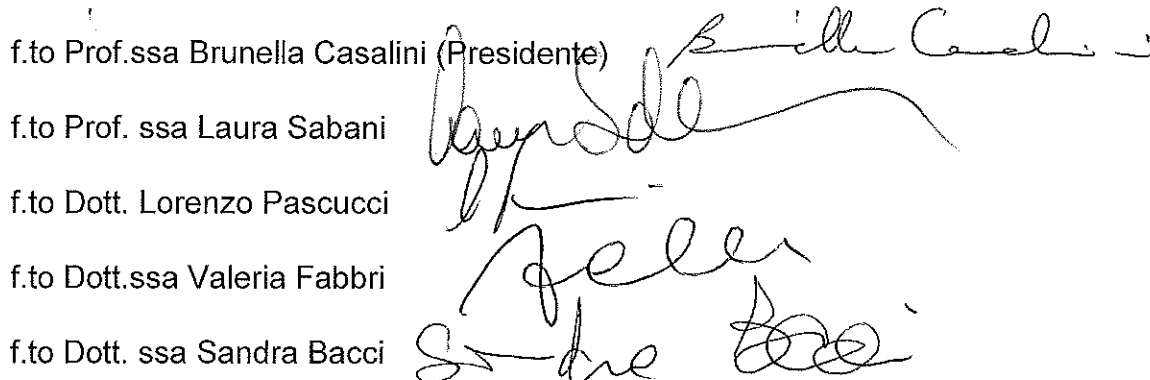 f.to Prof.ssa Brunella Casalini (Presidente) Brunella Casalini
f.to Prof. ssa Laura Sabani
f.to Dott. Lorenzo Pascucci
f.to Dott.ssa Valeria Fabbri
f.to Dott. ssa Sandra Bacci Sandra Bacci